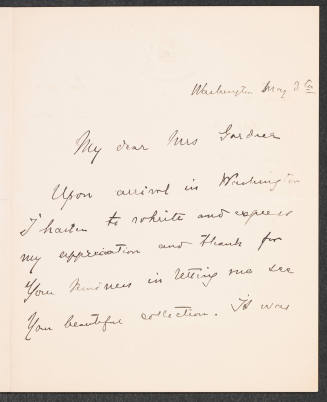 Washington May 3rd
My dear Mrs Gardner
Upon arrival in Washington
I hasten to write and express
my appreciation and thanks for
your kindness in letting me see
your beautiful collection. It was